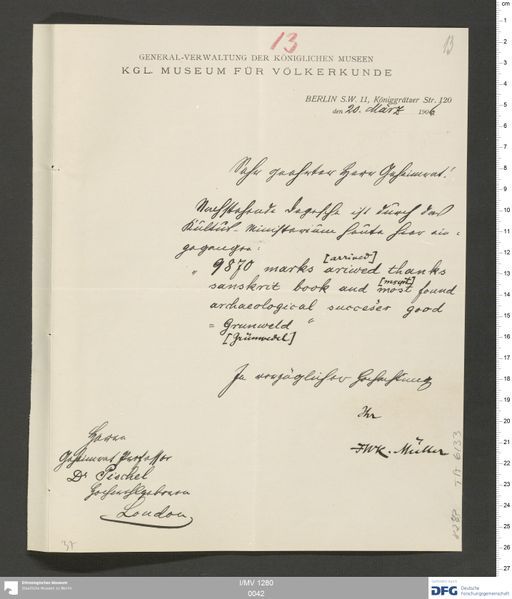 13
13
GENERAL-VERWALTUNG DER KÖNIGLICHEN MUSEEN
KGL. MUSEUM FÜR VÖLKERKUNDE
BERLIN S.W. 11, Königgrätzer Str. 120
den 20. März 1906
Sehr geehrter Herr Geheimrat!
Nachstehende Depesche ist durch das
Kultus-Ministerium heute hier ein-
gegangen:
[arrived]
„ 9870 marks ariwed thanks
[mount]
sanskrit book and most found
archaeological succeser good
= Grunweld "
[Grünwedel]
In vorzüglicher Hochachtung
Ihr
FWK. Müller
Herrn
Geheimrat Professor
Dr Pischel
Hochwohlgeboren
London
37
TA 6133
cm
1
2
3
4
5
6
7
8
9
10
11
12
13
14
15
16
17
18
19
20
21
22
23
24
25
26
27
Ethnologisches Museum
Staatliche Museen zu Berlin
I/MV 1280
0042
gefördert durch
DFG Deutsche
Forschungsgemeinschaft